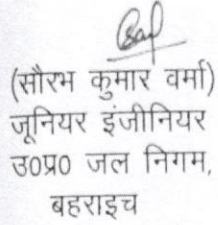 (सौरभ कुमार वर्मा)
जूनियर इंजीनियर
उ0प्र0 जल निगम,
बहराइच